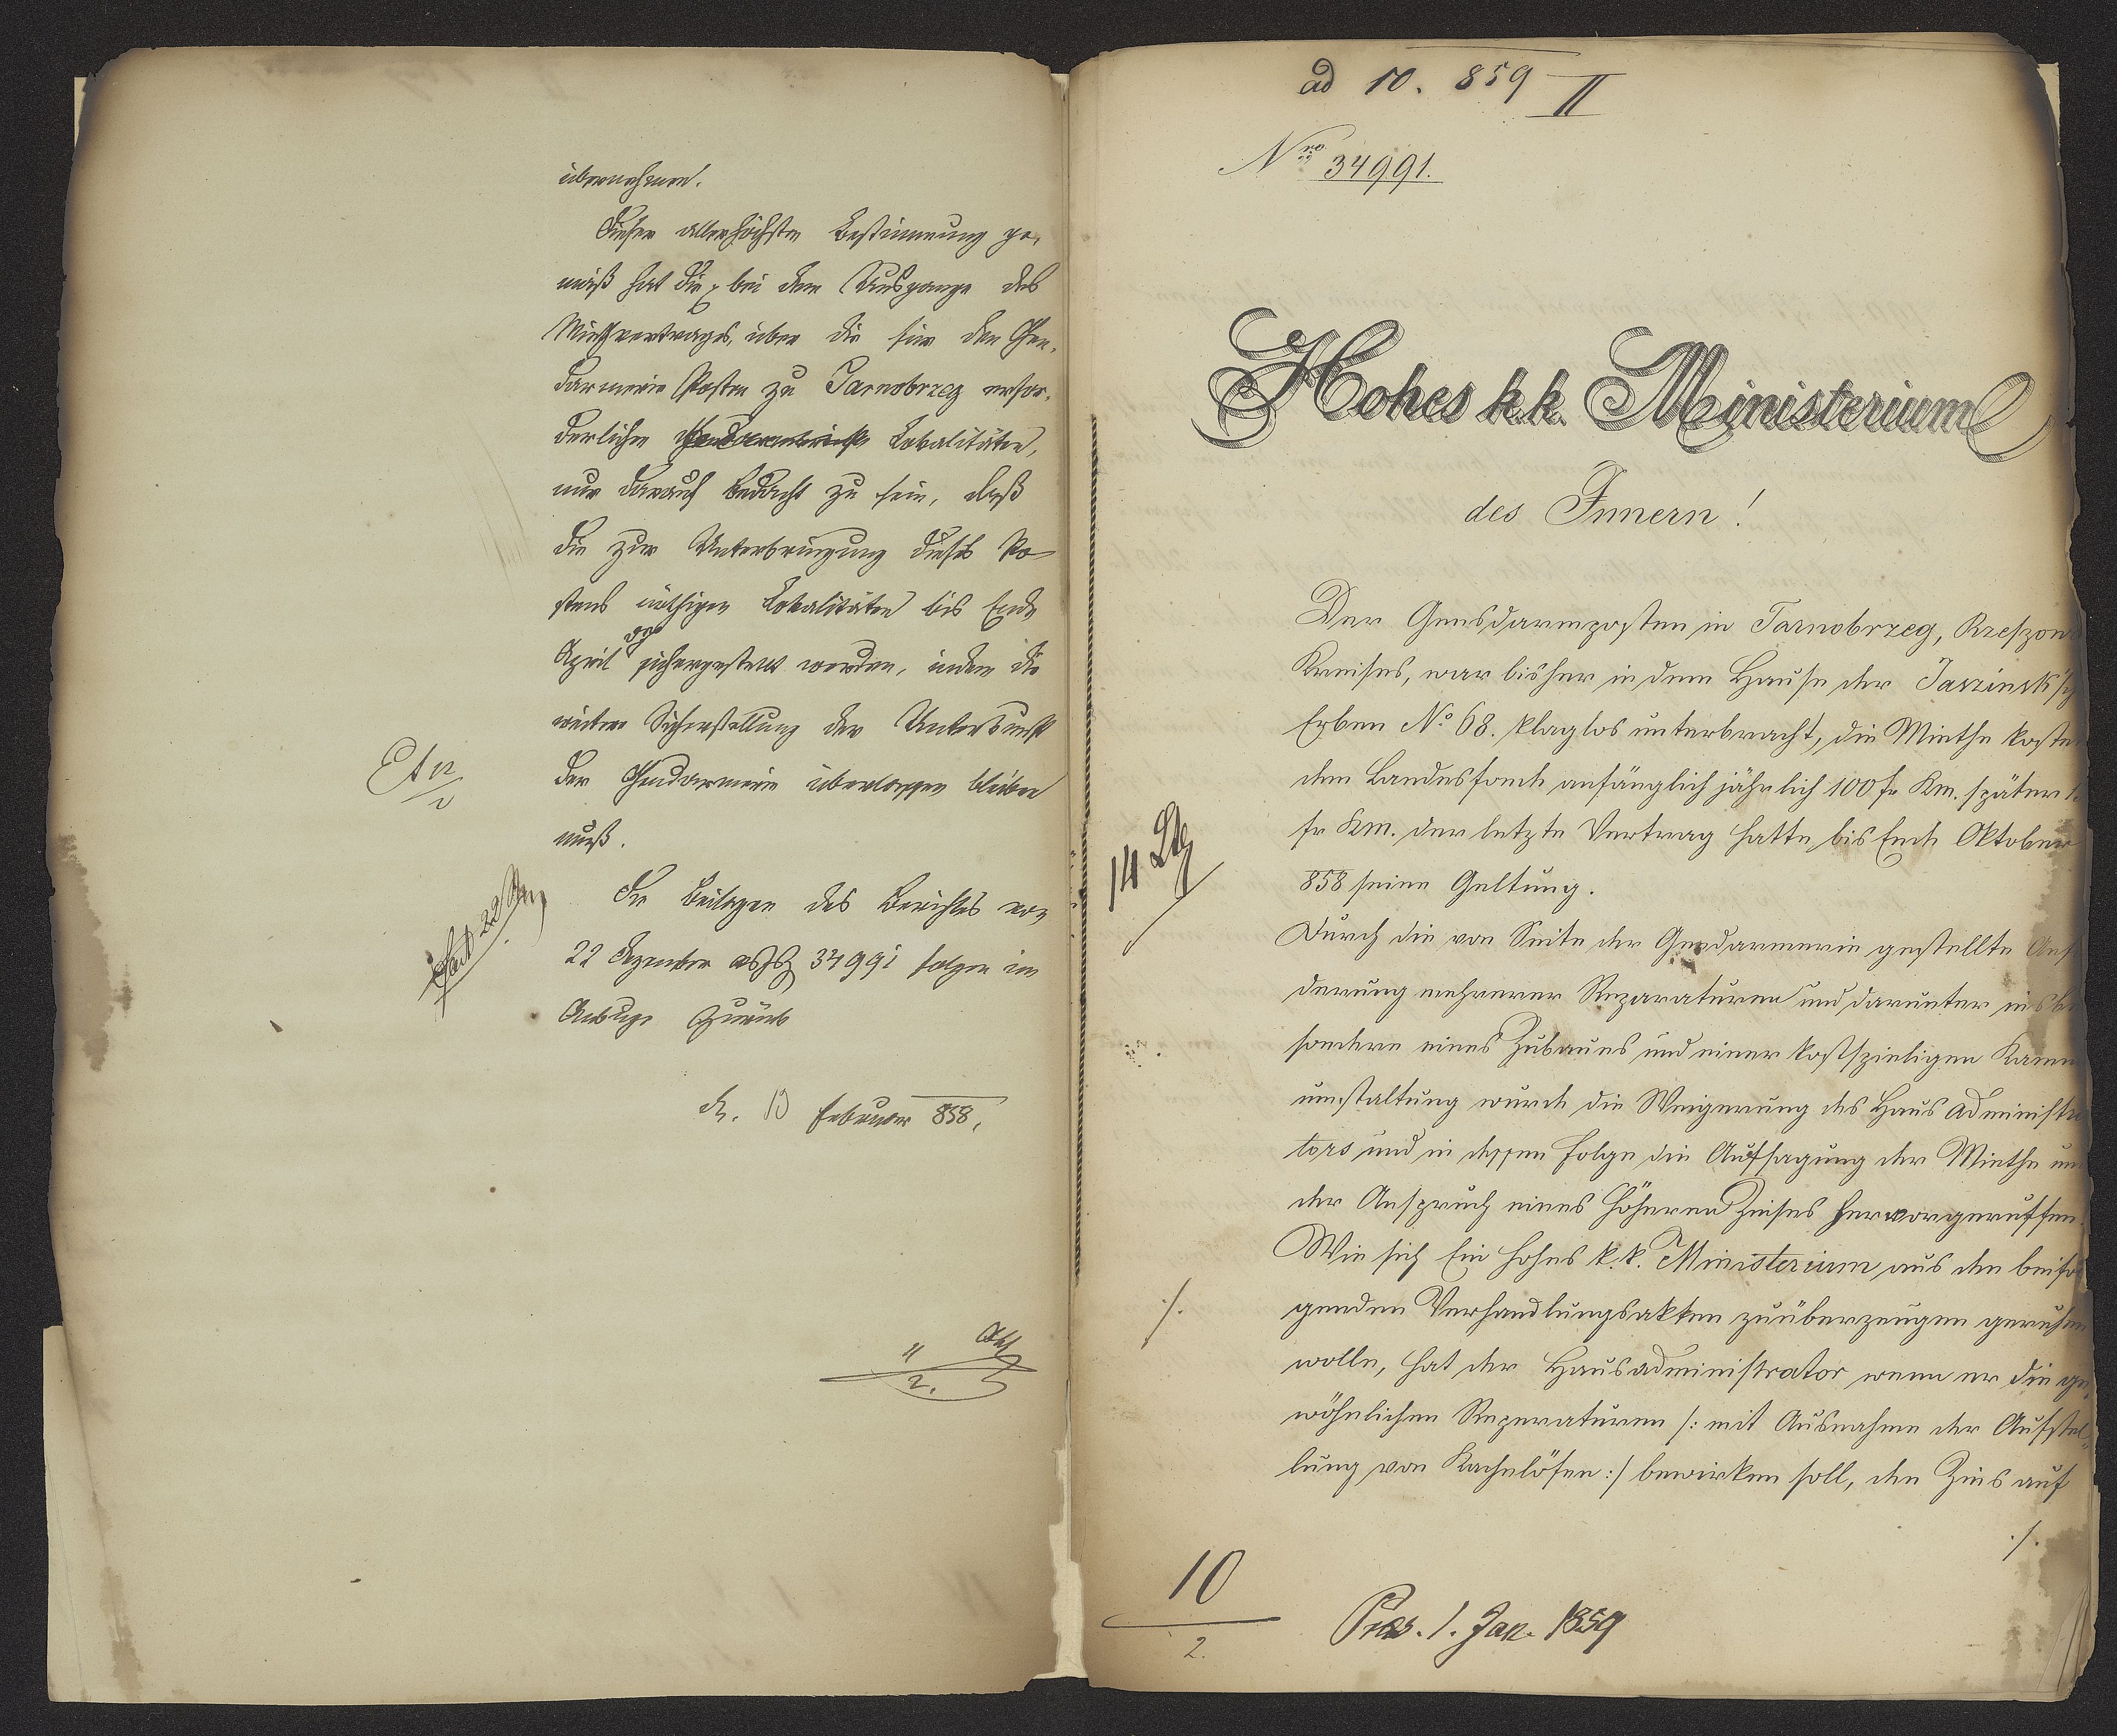 übernehmen.
Dieser allerhöchsten Bestimmung ge-
mäß hat die, bei dem Ausgange des
Miethvertrages, über die für den Gen-
darmerie Posten zu Tarnobrzeg erfor-
derlichen Lokalitäten,
nur darauf bedacht zu sein, daß
die zur Unterbringung dieses Po-
stens nöthigen Lokalitäten bis Ende
April sichergestellt werden, indem die
weitere Sicherstellung der Unterkunft
der Gendarmerie überlassen bleiben
muß.
Die Beilagen des Berichtes vom
22 Dezember 34991 folgen im
Anbuge zurück
d. 13 Februar 858.
ad 10. 859 II
Nro 34991.
Hohes k.k. Ministerium
des Innern!
Der Gensdarmposten in Tarnobrzeg, Rzeszow
Kreises, war bisher in dem Hause der Jaszinski'sch
Erben No 68. klaglos unterbracht, die Miethe koste
dem Landesfonde anfänglich jährlich 100 fr Km. später 1
fr Km. der letzte Vertrag hatte bis Ende Oktober
858 seine Geltung.
Durch die von Seite der Gendarmerie gestellte Anfo
derung mehrerer Reparaturen und darunter insbe
sondere eines Zubaues und einer kostspieligen Kamin
umstaltung wurde die Weigerung des Haus administra
tors und in dessen Folge die Aufsagung der Miethe un
der Anspruch eines höheren Zinses hervorgeruffen.
Wie sich Ein hohes k.k. Ministerium aus den beifol
genden Verhandlungsakten zuüberzeugen geruhen
wolle, hat der Hausadministrator wenn er die ge-
wöhnlichen Reperaturen /: mit Ausnahme der Aufstel-
lung von Kachelöfen :/ bewirken soll, den Zins auf
./.
./.
10
2.
Präs. 1. Jan. 1859